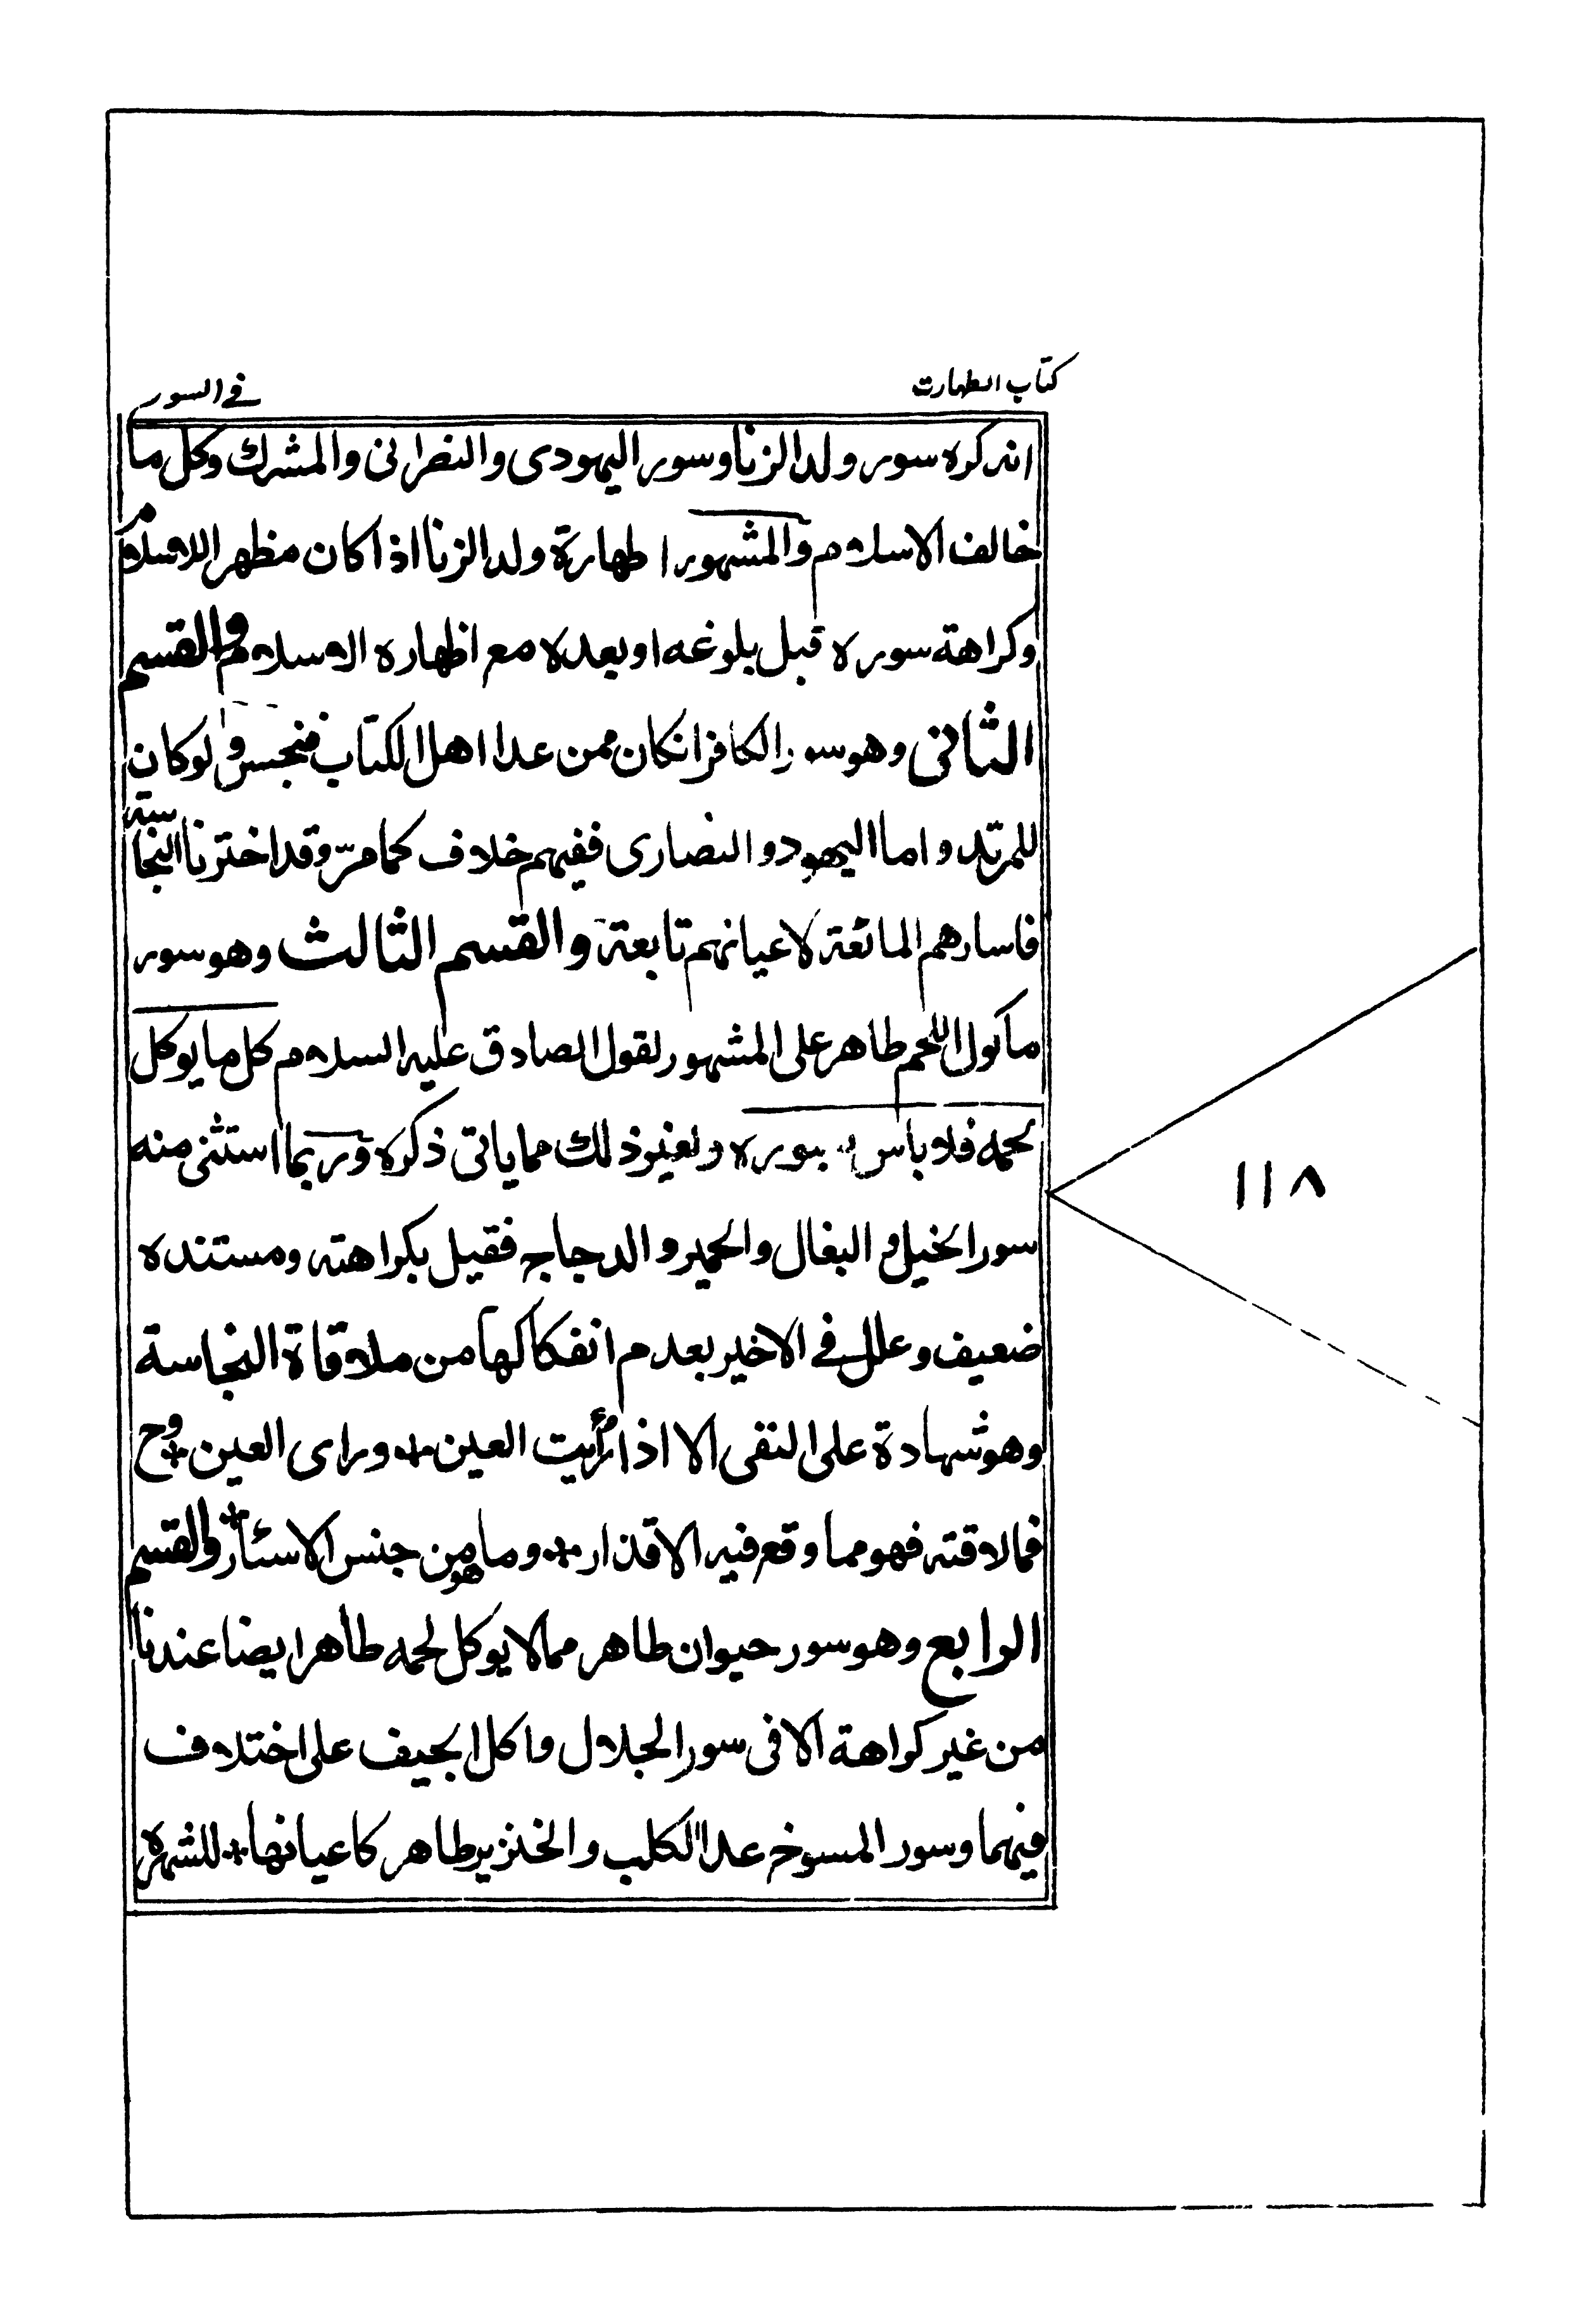 كتاب الطهارت
في السور
انه كره سور ولد الزنا وسور اليهودى والنصرانى والمشرك وكل ما
خالف الاسلام والمشهور طهارة ولد الزنا اذا كان مظهر الاسلام
وكراهة سوره قبل بلوغه او بعده مع اظهاره الاسلام والقسم
الثانى وهو سور الكافر انكان ممن عدا اهل الكتاب فنجس ولو كان
للمرتد واما اليهود والنصارى ففيهم خلاف كما مرّ وقد اخترنا النجاسة
فاسارهم المائعة لاعيانهم تابعة والقسم الثالث وهو سور
ماكول اللحم طاهر على المشهور لقول الصادق عليه السلام كل ما يوكل
لحمه فلا باس بسوره ولغير ذلك مما ياتى ذكره وربما استثنى منه
سور الخيل والبغال والحمير والدجاجه فقيل بكراهته ومستنده
ضعيف وعلل في الاخير بعدم انفكاكها من ملاقاة النجاسة
وهو شهادة على النفى الا اذا رأيت العين * وراى العين * وح
فمالاقته فهو مما وقع فيه الاقذار * وما هو من جنس الاسئار * والقسم
الرابع وهو سور حيوان طاهر مما لا يوكل لحمه طاهر ايضا عندنا
من غير كراهة الا فى سور الجلال واكل الجيف على اختلاف
فيهما وسور المسوخ عدا الكلب والخنزير طاهر كاعيانها * للشهرة
١١٨